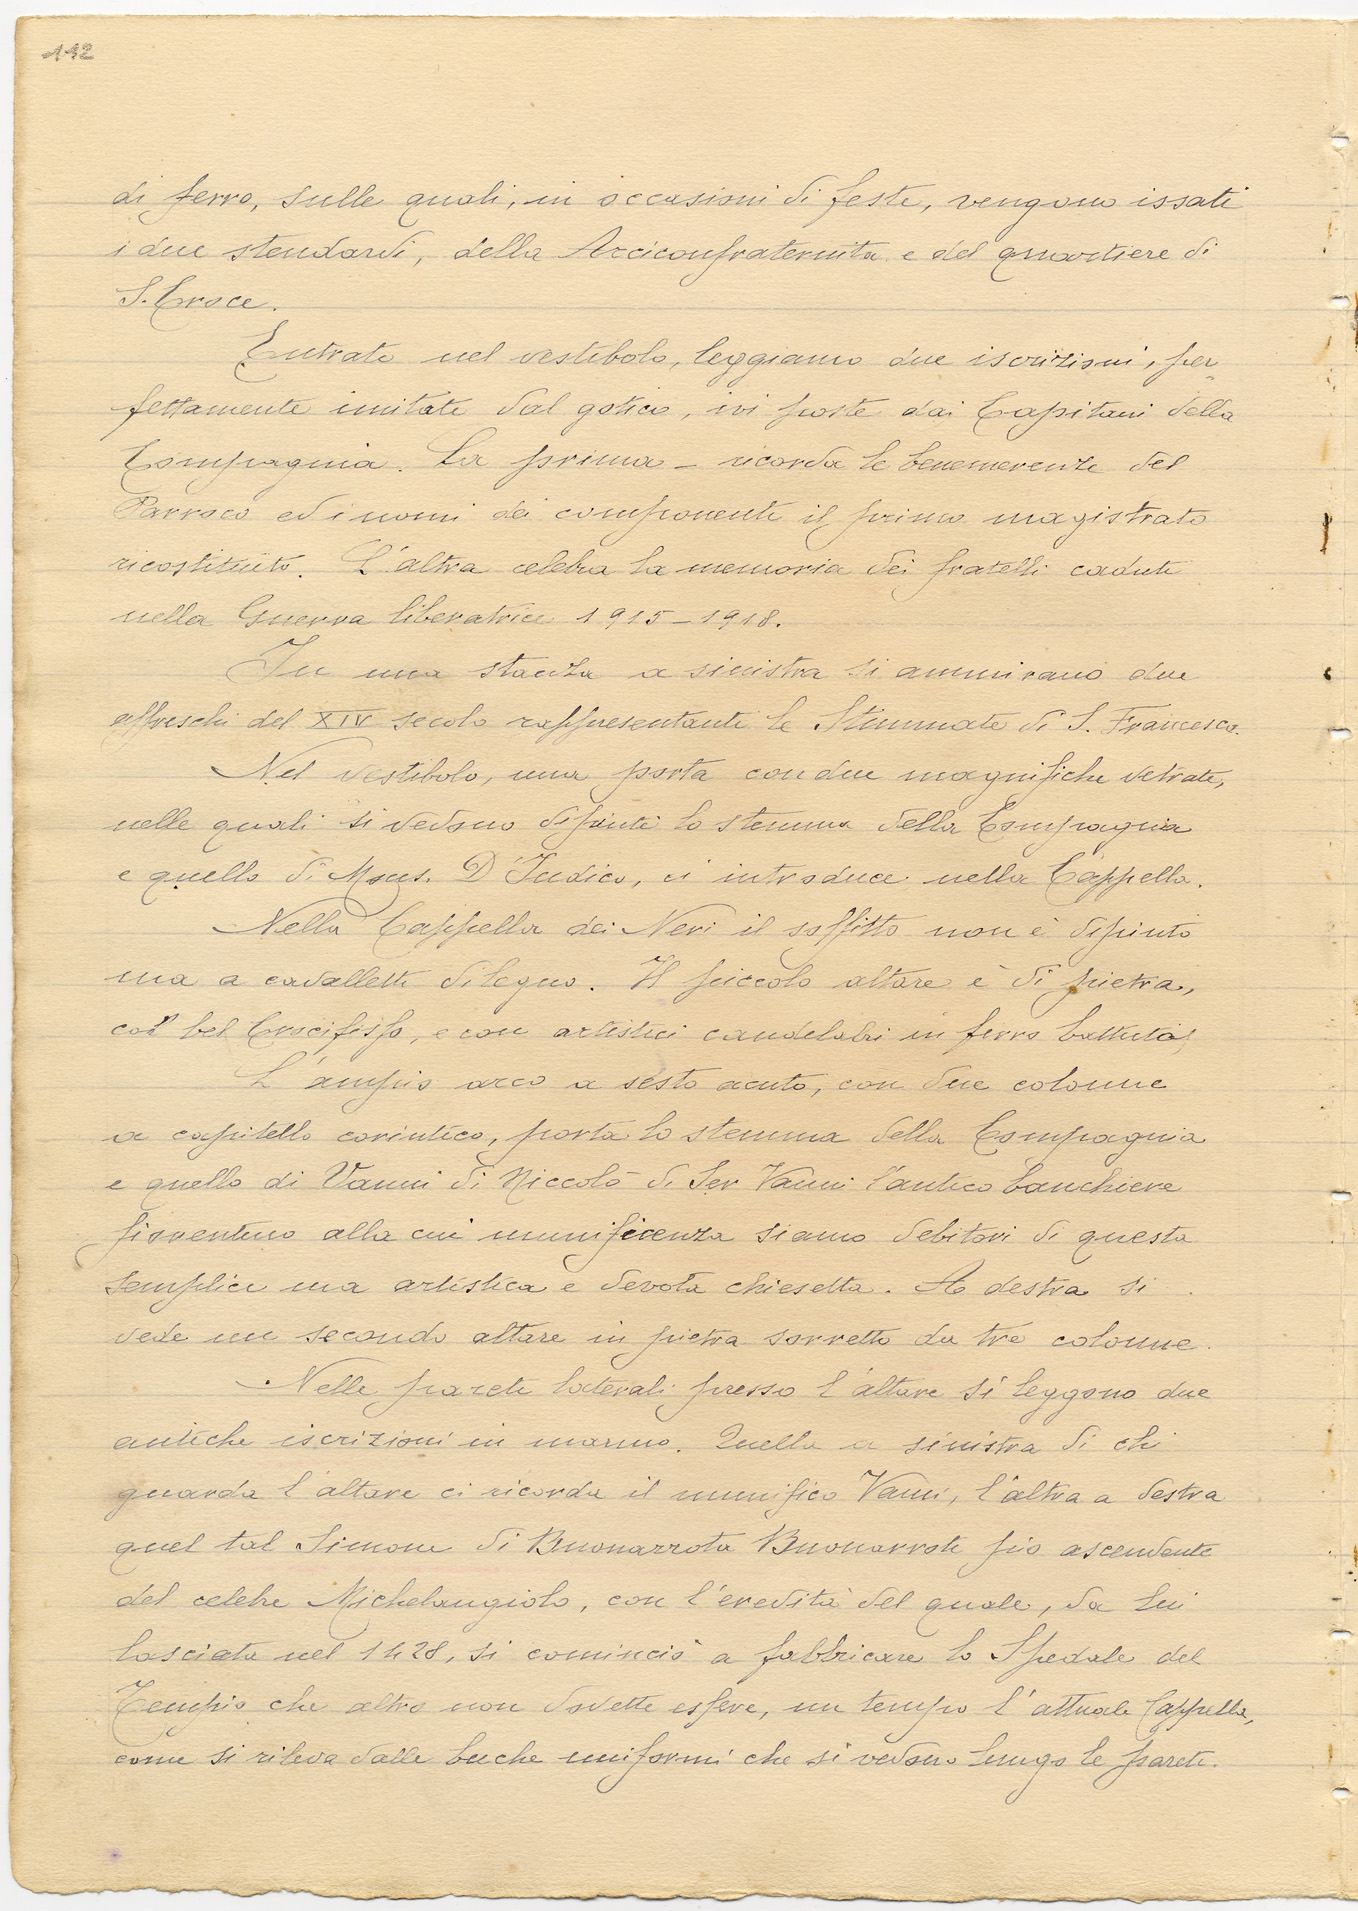 112
di ferro, sulle quali, in occasioni di feste, vengono issati
i due stendardi, della Arciconfraternita e del quartiere di
S. Croce.
Entrato nel vestibolo, leggiamo due iscrizioni, per
fettamente imitate dal gotico, ivi poste dai Capitani della
Compagnia. La prima - ricorda le benemerenze del
Parroco ed i nomi dei componenti il primo magistrato
ricostituito. L'altra celebra la memoria dei fratelli caduti
nella Guerra liberatrice 1915-1918.
In una stanza a sinistra si ammirano due
affreschi del XIV secolo rappresentanti le Stimmate di S. Francesco.
Nel vestibolo, una porta con due magnifiche vetrate,
nelle quali si vedono dipinti lo stemma della Compagnia
e quello di Mons. D'Indico, ci introduce nella Cappella.
Nella Cappella dei Neri il soffitto non è dipinto
ma a cavalletti di legno. Il piccolo altare è di pietra,
col bel Crocifisso, e con artistici candelabri in ferro battuto,
L'ampio arco a sesto acuto, con due colonne
a capitello corintico, porta lo stemma della Compagnia
e quello di Vanni di Niccolò di Ser Vanni l'antico banchiere
fiorentino alla cui munificenza siamo debitori di questa
semplice ma artistica e devota chiesetta. A destra si
vede un secondo altare in pietra sorretto da tre colonne.
Nelle pareti laterali presso l'altare si leggono due
antiche iscrizioni in marmo. Quella a sinistra di chi
guarda l'altare ci ricorda il munifico Vanni, l'altra a destra
quel tal Simone di Buonarrota Buonarroti pio ascendente
del celebre Michelangiolo, con l'eredità del quale, da lui
lasciata nel 1428, si cominciò a fabbricare lo Spedale del
Tempio che altro non dovette essere, un tempo l'attuale Cappella,
come si rileva dalle buche uniformi che si vedono lungo le pareti.